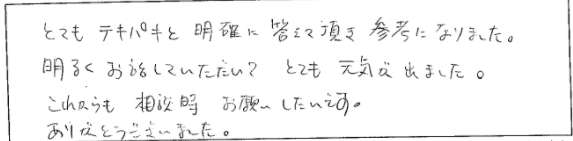 とても テキパキと 明確に 答えて頂き 参考になりました。
明るく お話していただいて とても 元気が 出ました。
これからも 相談時 お願いしたいです。
ありがとうございました。